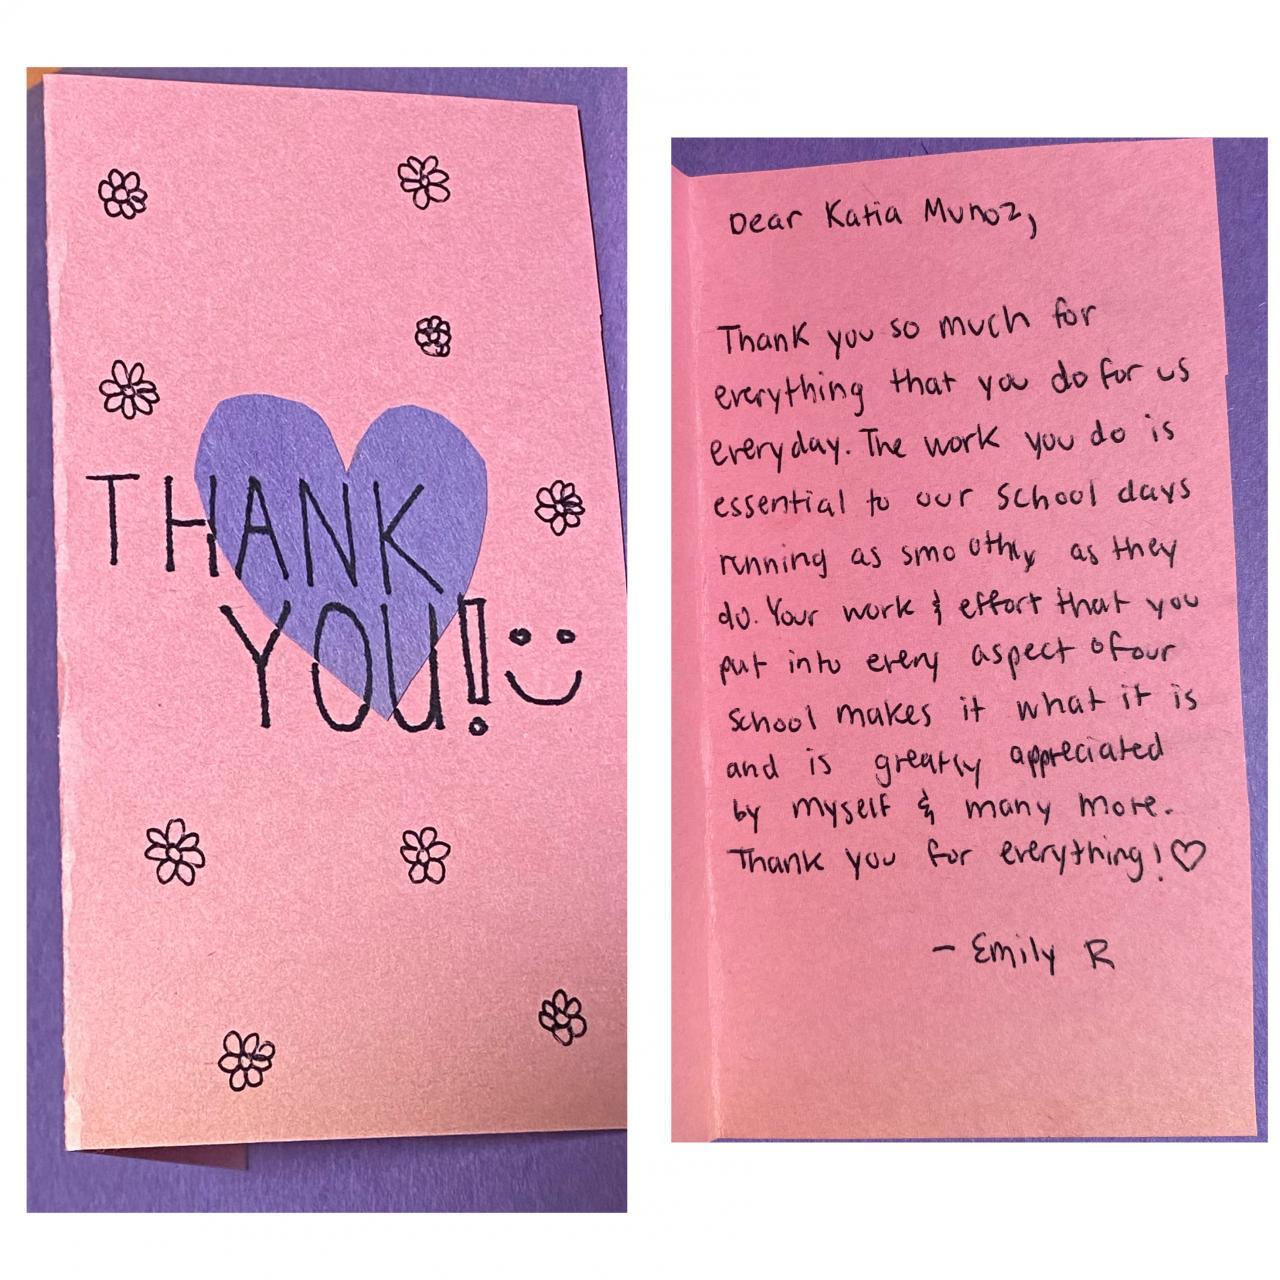 THANK
YOU!
Dear Katia Munoz,
Thank you so much for
everything that you do for us
everyday. The work you do is
essential to our school days
running as smoothly as they
do. Your work & effort that you
put into every aspect of our
school makes it what it is
and is greatly appreciated
by myself & many more.
Thank you for everything! ♡
- Emily R